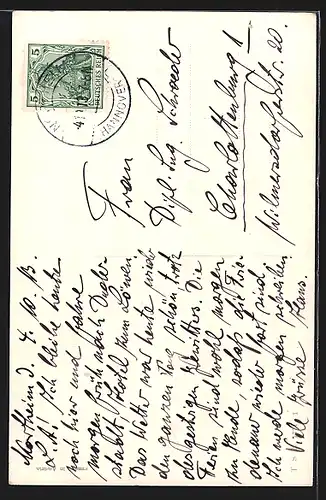 Northeim d. 4. 10. 13.
L. A.! Ich bleibe heute
noch hier und fahre
morgen früh nach Duder-
stadt, Hotel zum Löwen.
Das Wetter war heute wieder
den ganzen Tag schön, trotz
des gestrigen Gewitters. Die
Ferien sind wohl morgen
zu Ende, sodaß die Frie-
denauer wieder fort sind.
Ich werde morgen schreiben
Viele Grüsse Hans.
Frau
Dipl. Ing. Schroeder
Charlottenburg 1
Wilmersdorferstr. 20.
5
5
DEUTSCHES REICH
HANNOVER